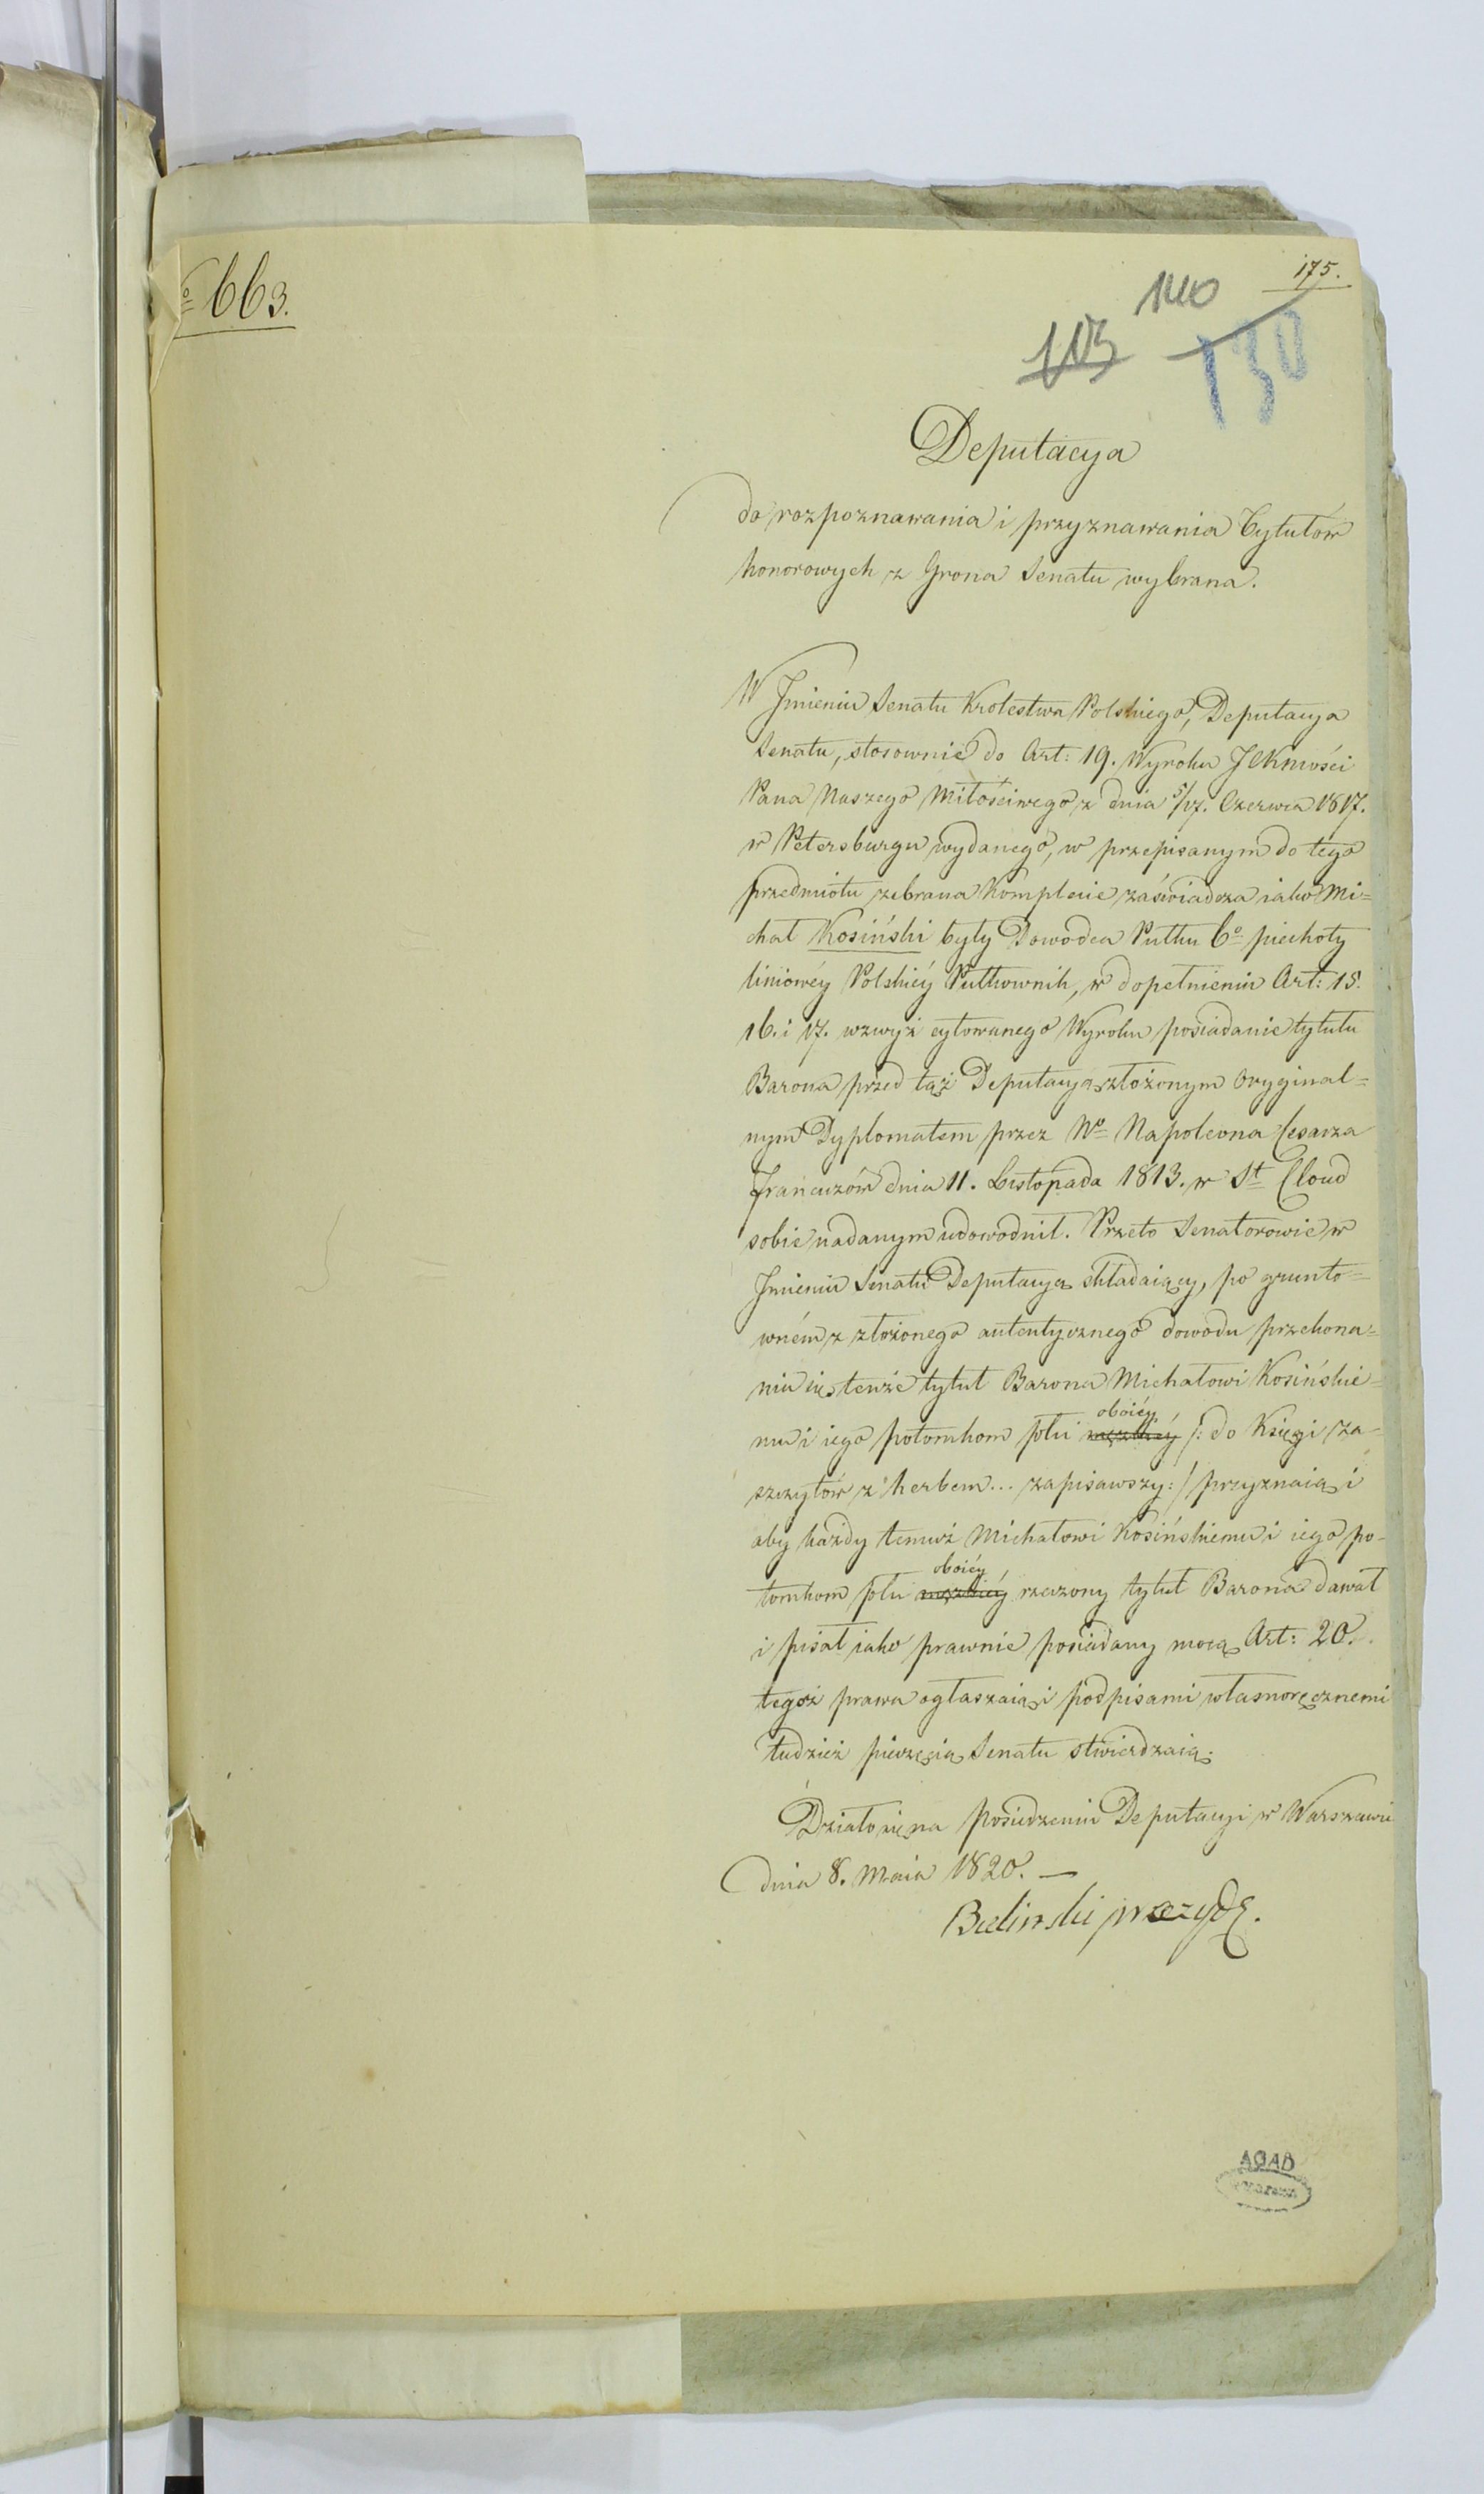 º 663.
175.
140
103
130
Deputacya
do rozpoznawania i przyznawania Tytułów
honorowych z Grona Senatu wybrana.
W Jmieniu Senatu Krolestwa Polskiego, Deputacya
Senatu, stosownie do Art: 19. Wyroku JCKmości
Pana Naszego Miłościwego z dnia 5/17. Czerwca 1817.
w Petersburgu wydanego, w przepisanym do tego
przedmiotu zebrana Komplecie zaświadcza iako Mi=
chał Kosiński były Dowodca Pułku 6º piechoty
liniowéy Polskiéy Pułkownik, w dopełnieniu Art: 15.
16. i 17. wzwyż cytowanego Wyroku posiadanie tytułu
Barona przed tąż Deputacyą złożonym Oryginal=
nym Dyplomatem przez Nº Napoleona Cesarza
Francuzów dnia 11. Listopada 1813. w St Cloud
sobie nadanym udowodnił. Przeto Senatorowie w
Jmieniu Senatu Deputacyą składaiący, po grunto=
wném z złożonego autentycznego dowodu przekona=
niu się tenże tytuł Barona Michałowi Kosińskie=
mu i iego potomkom płci męzkiéy oboiéy /: do Księgi za=
szczytów z herbem... zapisawszy :/ przyznaią i
aby każdy temuż Michałowi Kosińskiemu i iego po=
tomkom płci męzkiéy oboiéy rzeczony tytuł Barona dawał
i pisał iako prawnie posiadany mocą Art: 20.
tegoż prawa ogłaszaią i podpisami własnoręcznemi
tudzież pieczęcią Senatu stwierdzaią.
Działo się na posiedzeniu Deputacyi w Warszawie
dnia 8. Maia 1820. —
Bielinski prezyd
AGAD
Warszawa